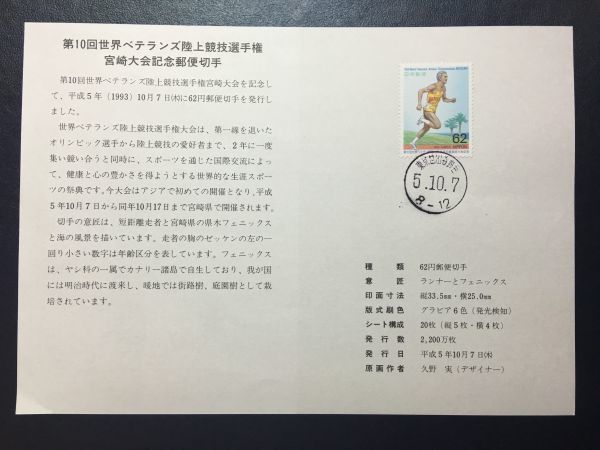 第10回世界ベテランズ陸上競技選手権
宮崎大会記念郵便切手
第10回世界ベテランズ陸上競技選手権宮崎大会を記念し
て、平成5年（1993）10月7日㈭に62円郵便切手を発行し
ました。
世界ベテランズ陸上競技選手権大会は、第一線を退いた
オリンピック選手から陸上競技の愛好者まで、2年に一度
集い競い合うと同時に、スポーツを通じた国際交流によっ
て、健康と心の豊かさを得ようとする世界的な生涯スポー
ツの祭典です。今大会はアジアで初めての開催となり、平成
5年10月7日から同年10月17日まで宮崎県で開催されます。
切手の意匠は、短距離走者と宮崎県の県木フェニックス
と海の風景を描いています。走者の胸のゼッケンの左の一
回り小さい数字は年齢区分を表しています。フェニックス
は、ヤシ科の一属でカナリー諸島で自生しており、我が国
には明治時代に渡来し、暖地では街路樹、庭園樹として栽
培されています。
日本郵便
62
NIPPON
5.10.7
8-12
種類 62円郵便切手
意匠 ランナーとフェニックス
印面寸法 縦33.5mm・横25.0mm
版式刷色 グラビア6色（発光検知）
シート構成 20枚（縦5枚・横4枚）
発行数 2,200万枚
発行日 平成5年10月7日㈭
原画作者 久野 実（デザイナー）